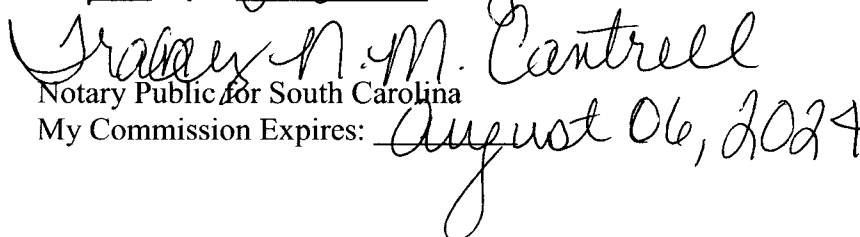 Tracey N. M. Cantrell
Notary Public for South Carolina
My Commission Expires: August 06, 2024